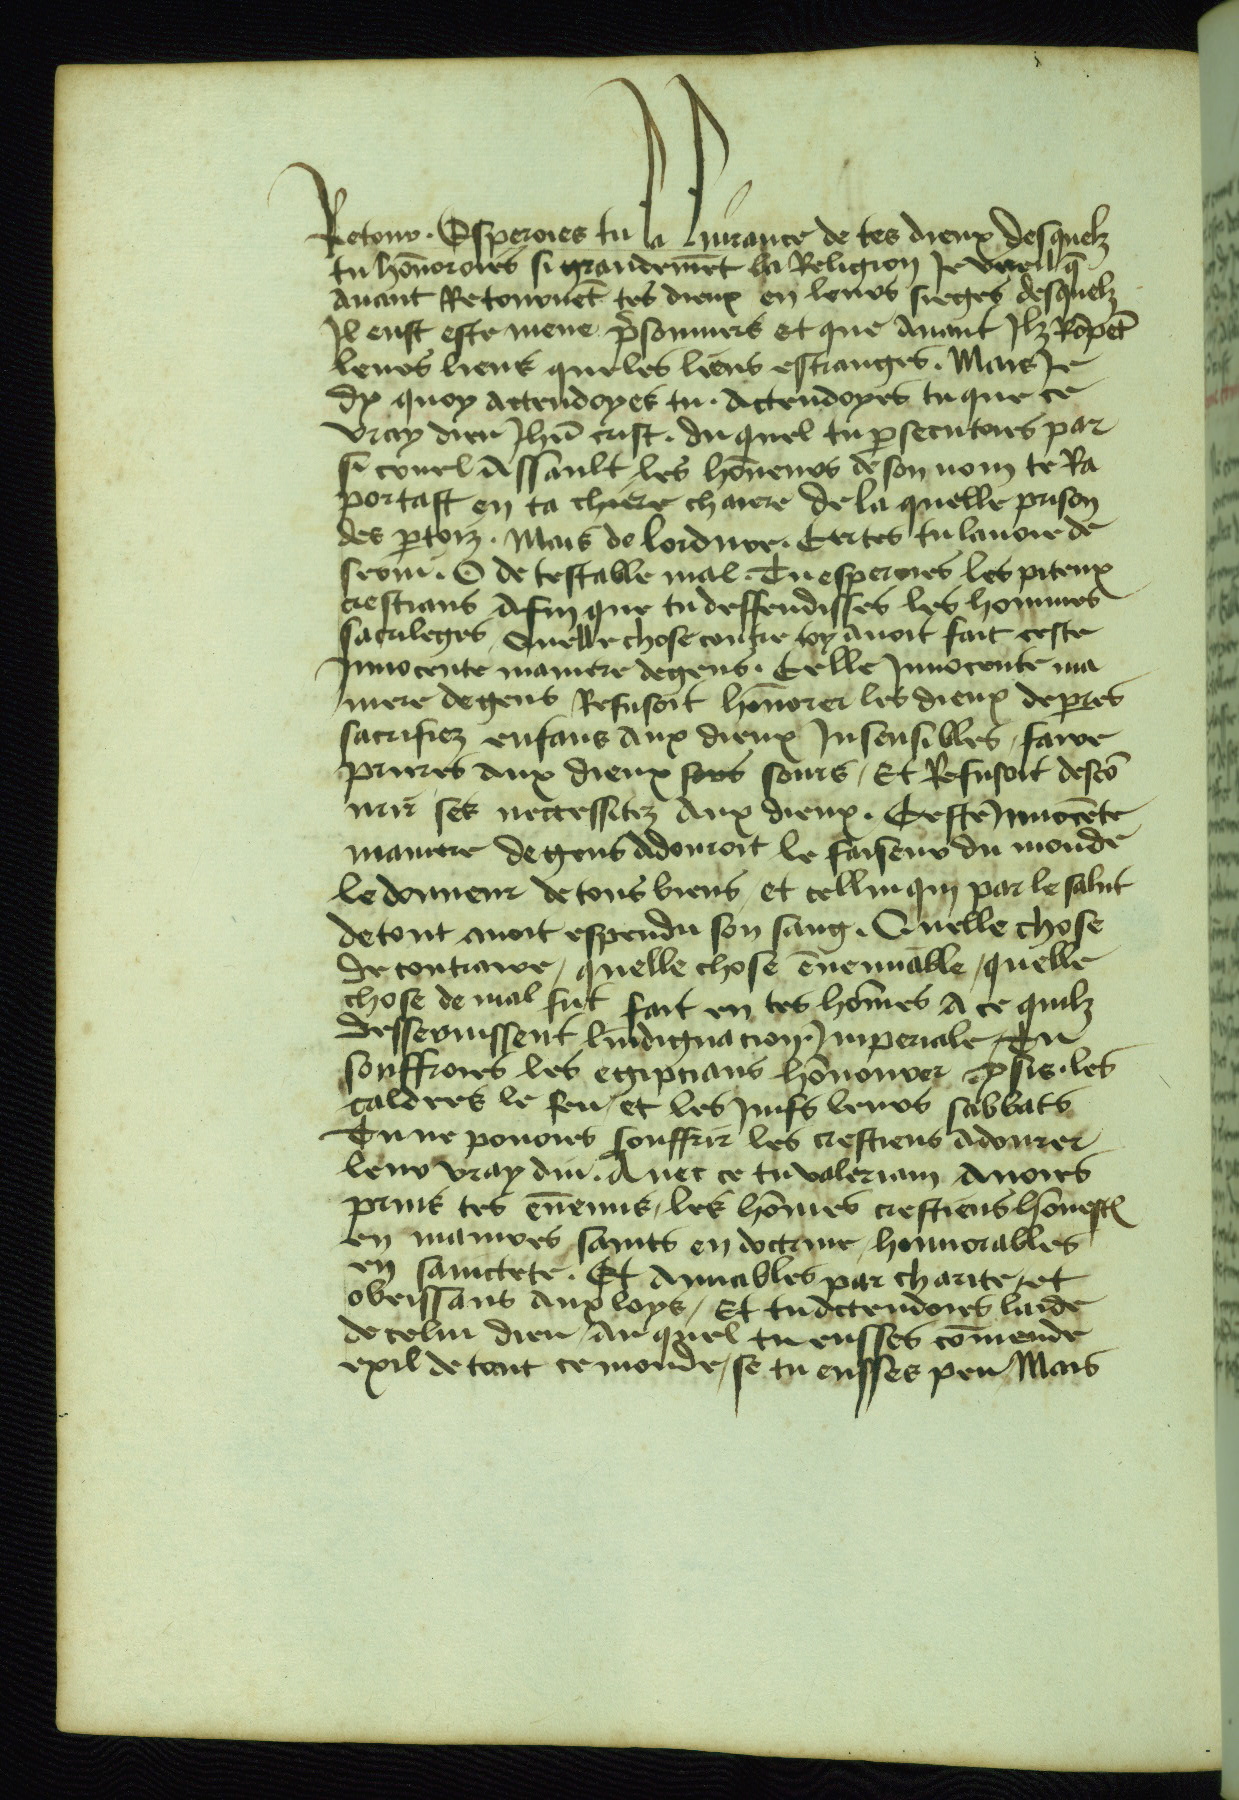 Retour. Esperoies tu la liurance de tes dieux desquelz
tu hōnoroies si grandemēt la Religion Je vueil q̄
auant Retournēt tes dieux en leurs sieges desquelz
Il eust este mene p̄sonniers et que auant Ilz Rōpēt
leurs liens que les liens estranges. Mais Je
dy quoy actendoyes tu. Actendoyes tu que ce
vray dieu Jhū crist. du quel tu p̱secutoies par
si cruel Assault les hōneurs de son nom te Ra
portast en ta chiere chaiere de la quelle prison
des p̱toiz. Mais de lordure. Certes tu lauoie de
serui. O de testable mal. Tu esperoies les piteux
crestians Afin que tu deffendisses les hommes
sacrileges, Quelle chose contre toy auoit fait ceste
Innocente maniere de gens. Celle Innocente ma
niere de gens Refusoit hōnorer les dieux de pierres
sacrifiez enfans aux dieux Insensibles, faire
prieres aux dieux sors sours, Et Refusoit descō
urir ses neccessitez aux dieux. Ceste Innocēte
maniere de gens Adouroit le faiseur du monde
le donneur de tous biens, et celluy qui par le salut
de tout auoit espendu son sang. Quelle chose
de contraire, quelle chose ēnemiāble, quelle
chose de mal fut fait en tes hōmes A ce quilz
desseruissent lindignacion Imperiale, Tu
souffroies les egiptians hōnourer ysis. les
caldees le feu, et les Juifs leurs sabbats
Tu ne pouoies souffrir les crestiens Adourer
leur vray diu. Auec ce tu valerian Auoies
prins tes ēnemis, les hōmes crestiens hōnest̄
en manieres saints en doctrine, honnorables
en sainctete. Et Amiables par charite, et
obeissans aux loys, Et tu Actendoies laide
de celui dieu, Au quel tu eusses cōmende
exil de tout ce monde, se tu eusses peu Mais